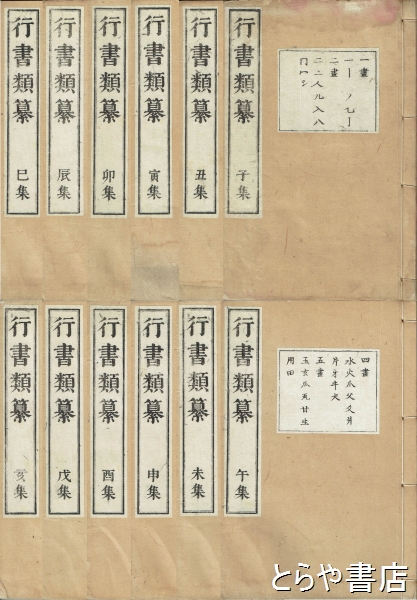 一畫
一丨丶丿乙亅
二畫
二亠人儿入八
冂冖冫
行書類纂 子集
行書類纂 丑集
行書類纂 寅集
行書類纂 卯集
行書類纂 辰集
行書類纂 巳集
四畫
水火爪父爻爿
片牙牛犬
五畫
玉玄瓜瓦甘生
用田
行書類纂 午集
行書類纂 未集
行書類纂 申集
行書類纂 酉集
行書類纂 戌集
行書類纂 亥集
とらや書店